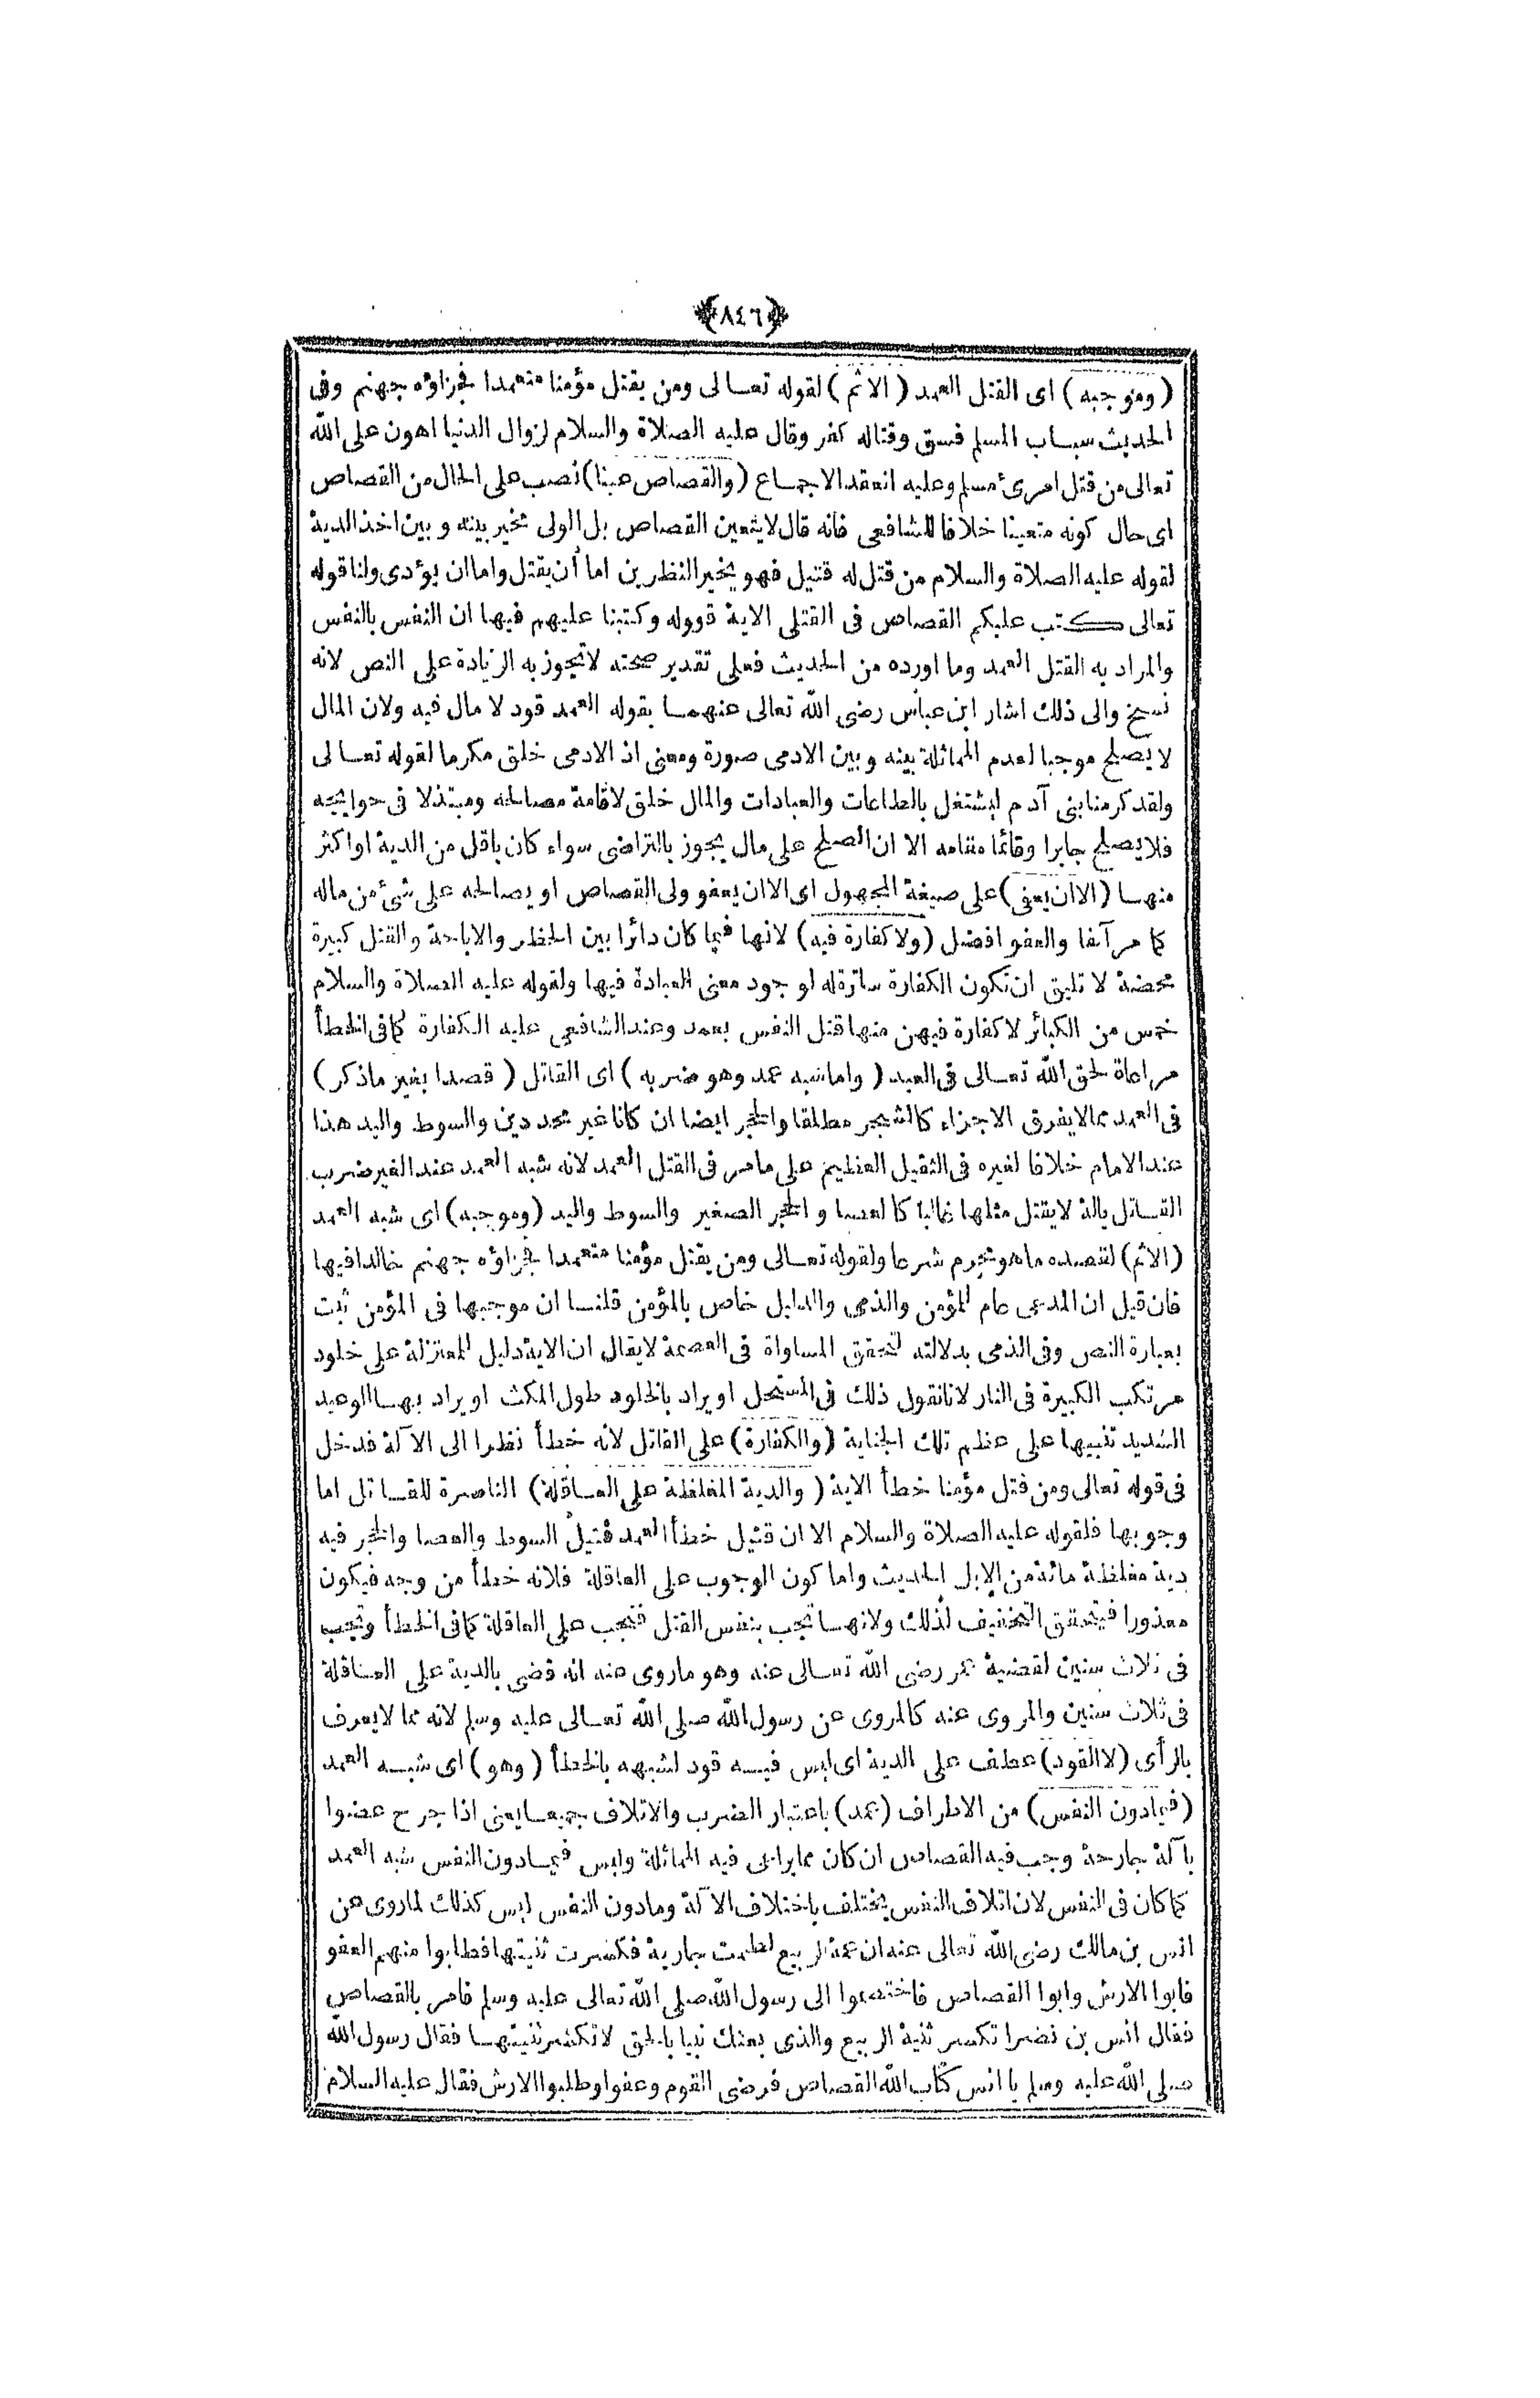 ﴿٨٤٦﴾
(وموجبه) اى القتل العمد (الاثم) لقوله تعالى ومن يقتل مؤمنا متعمدا فجزاؤه جهنم وفى
الحديث سباب المسلم فسق وقتاله كفر وقال عليه الصلاة والسلام لزوال الدنيا اهون على الله
تعالى من قتل امرئ مسلم وعليه انعقد الاجماع (والقصاص عينا) نصب على الحال من القصاص
اى حال كونه متعينا خلافا للشافعى فانه قال لا يتعين القصاص بل الولى مخير بينه وبين اخذ الدية
لقوله عليه الصلاة والسلام من قتل له قتيل فهو بخير النظرين اما أن يقتل واما ان يؤدى ولنا قوله
تعالى كتب عليكم القصاص فى القتلى الاية قووله وكتبنا عليهم فيها ان النفس بالنفس
والمراد به القتل العمد وما اورده من الحديث فعلى تقدير صحته لا تجوز به الزيادة على النص لانه
نسخ والى ذلك اشار ابن عباس رضى الله تعالى عنهما بقوله العمد قود لا مال فيه ولان المال
لا يصلح موجبا لعدم المماثلة بينه وبين الادمى صورة ومعنى اذ الادمى خلق مكرما لقوله تعالى
ولقد كرمنا بنى آدم ليشتغل بالطاعات والعبادات والمال خلق لاقامة مصالحه ومبتذلا فى حوايجه
فلا يصلح جابرا وقائما مقامه الا ان الصلح على مال يجوز بالتراضى سواء كان باقل من الدية او اكثر
منها (الا ان يعفى) على صيغة المجهول اى الا ان يعفو ولى القصاص او يصالحه على شئ من ماله
كما مر آنفا والعفو افضل (ولا كفارة فيه) لانها فيما كان دائرا بين الحظر والاباحة والقتل كبيرة
محضة لا تليق ان تكون الكفارة ساترة له لوجود معنى العبادة فيها ولقوله عليه الصلاة والسلام
خمس من الكبائر لا كفارة فيهن منها قتل النفس بعمد وعند الشافعى عليه الكفارة كما فى الخطأ
مراعاة لحق الله تعالى فى العبد (واما شبه عمد وهو ضربه) اى القاتل (قصدا بغير ماذكر)
فى العمد مما لا يفرق الاجزاء كالشجر مطلقا والحجر ايضا ان كانا غير محددين والسوط واليد هذا
عند الامام خلافا لغيره فى الثقيل العظيم على ما مر فى القتل العمد لانه شبه العمد عند الغير ضرب
القاتل بالة لا يقتل مثلها غالبا كالعصا والحجر الصغير والسوط واليد (وموجبه) اى شبه العمد
(الاثم) لقصده ما هو محرم شرعا ولقوله تعالى ومن يقتل مؤمنا متعمدا فجزاؤه جهنم خالدا فيها
فان قيل ان المدعى عام للمؤمن والذمى والدليل خاص بالمؤمن قلنا ان موجبها فى المؤمن ثبت
بعبارة النص وفى الذمى بدلالته لتحقق المساواة فى العصمة لا يقال ان الاية دليل للمعتزلة على خلود
مرتكب الكبيرة فى النار لانا نقول ذلك فى المستحل او يراد بالخلود طول المكث او يراد بها الوعيد
الشديد تنبيها على عظم تلك الجناية (والكفارة) على القاتل لانه خطأ نظرا الى الآلة فدخل
فى قوله تعالى ومن قتل مؤمنا خطأ الاية (والدية المغلظة على العاقلة) الناصرة للقاتل اما
وجوبها فلقوله عليه الصلاة والسلام الا ان قتيل خطأ العمد قتيل السوط والعصا والحجر فيه
دية مغلظة مائة من الابل الحديث واما كون الوجوب على العاقلة فلانه خطأ من وجه فيكون
معذورا فيتحقق التخفيف لذلك ولانها تجب بنفس القتل فتجب على العاقلة كما فى الخطأ وتجب
فى ثلاث سنين لقضية عمر رضى الله تعالى عنه وهو ماروى عنه انه قضى بالدية على العاقلة
فى ثلاث سنين والمروى عنه كالمروى عن رسول الله صلى الله تعالى عليه وسلم لانه مما لا يعرف
بالرأى (لا القود) عطف على الدية اى ليس فيه قود لشبهه بالخطأ (وهو) اى شبه العمد
(فيمادون النفس) من الاطراف (عمد) باعتبار الضرب والاتلاف جميعا يعنى اذا جرح عضوا
بآلة جارحة وجب فيه القصاص ان كان مما يراعى فيه المماثلة وليس فيمادون النفس شبه العمد
كما كان فى النفس لان اتلاف النفس يختلف باختلاف الآلة ومادون النفس ليس كذلك لماروى عن
انس بن مالك رضى الله تعالى عنه ان عمة الربيع لطمت جارية فكسرت ثنيتها فطابوا منهم العفو
فابوا الارش وابوا القصاص فاختصموا الى رسول الله صلى الله تعالى عليه وسلم فامر بالقصاص
فقال انس بن نضر اتكسر ثنية الربيع والذى بعثك نبيا بالحق لا تكسر ثنيتها فقال رسول الله
صلى الله عليه وسلم يا انس كتاب الله القصاص فرضى القوم وعفوا وطلبوا الارش فقال عليه السلام